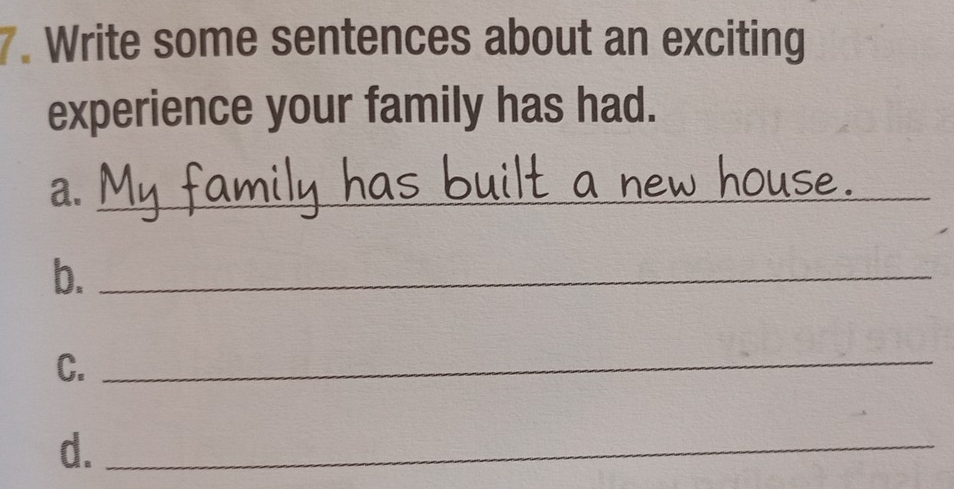 7. Write some sentences about an exciting
experience your family has had.
a. My family has built a new house.
b.
c.
d.